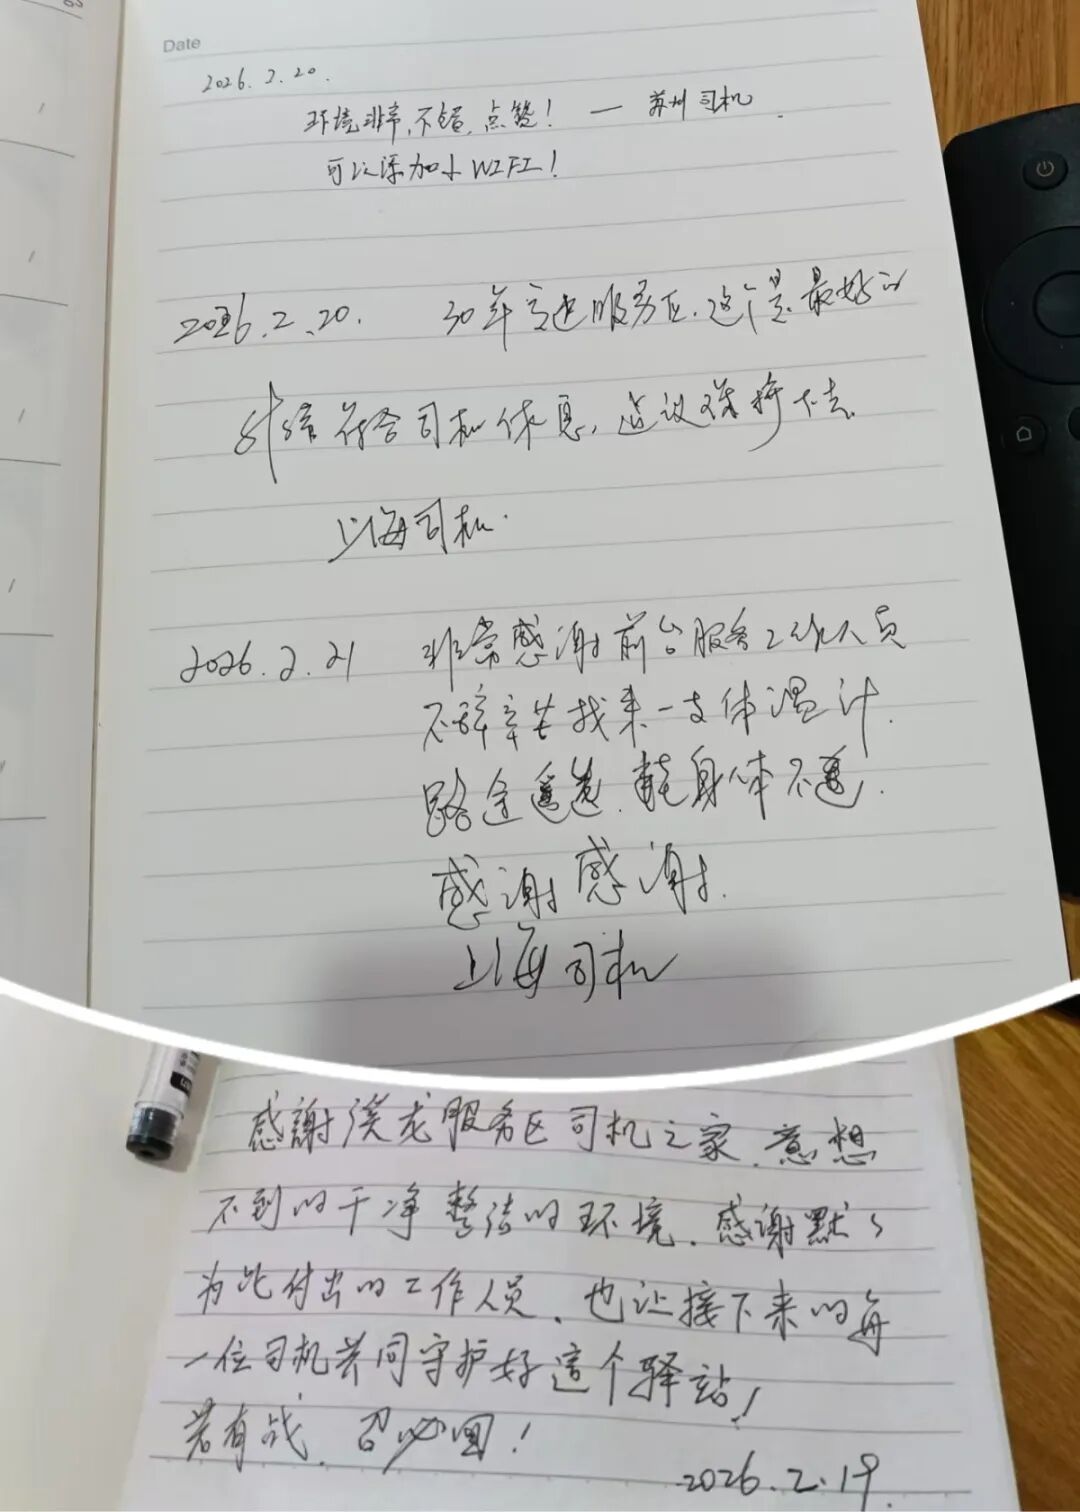 Date
2026.2.20.
环境非常不错,点赞! — 苏州司机
可以添加个WIFI!
2026.2.20. 30年高速服务区.这个是最好的
符合司机休息,建议保持下去.
上海司机.
2026.2.21 非常感谢前台服务工作人员
不辞辛苦找来一支体温计.
路途遥远.身体不适.
感谢感谢.
上海司机
感謝溪龙服务区司机之家.意想
不到的干净整洁的环境.感谢默々
为此付出的工作人员.也让接下来的每
一位司机共同守护好這个驿站!
若有战.召必回!
2026.2.19.